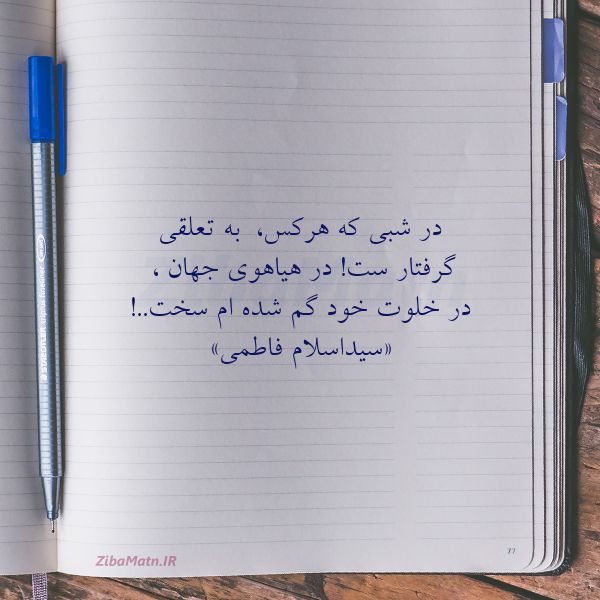 در شبی که هرکس، به تعلقی
گرفتار ست! در هیاهوی جهان ،
در خلوت خود گم شده ام سخت..!
«سیداسلام فاطمی»
ZibaMatn.IR
77